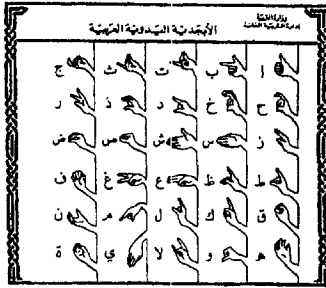 الأبجدية اليدوية العربية
ا ب ت ث ج
ح خ د ذ ر
ز س ش ص ض
ط ظ ع غ ف
ق ك ل م ن
ه و لا ي ة